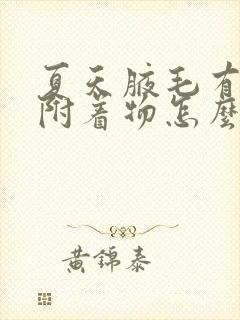 夏天腋毛有
附着物怎麽
黄錦泰